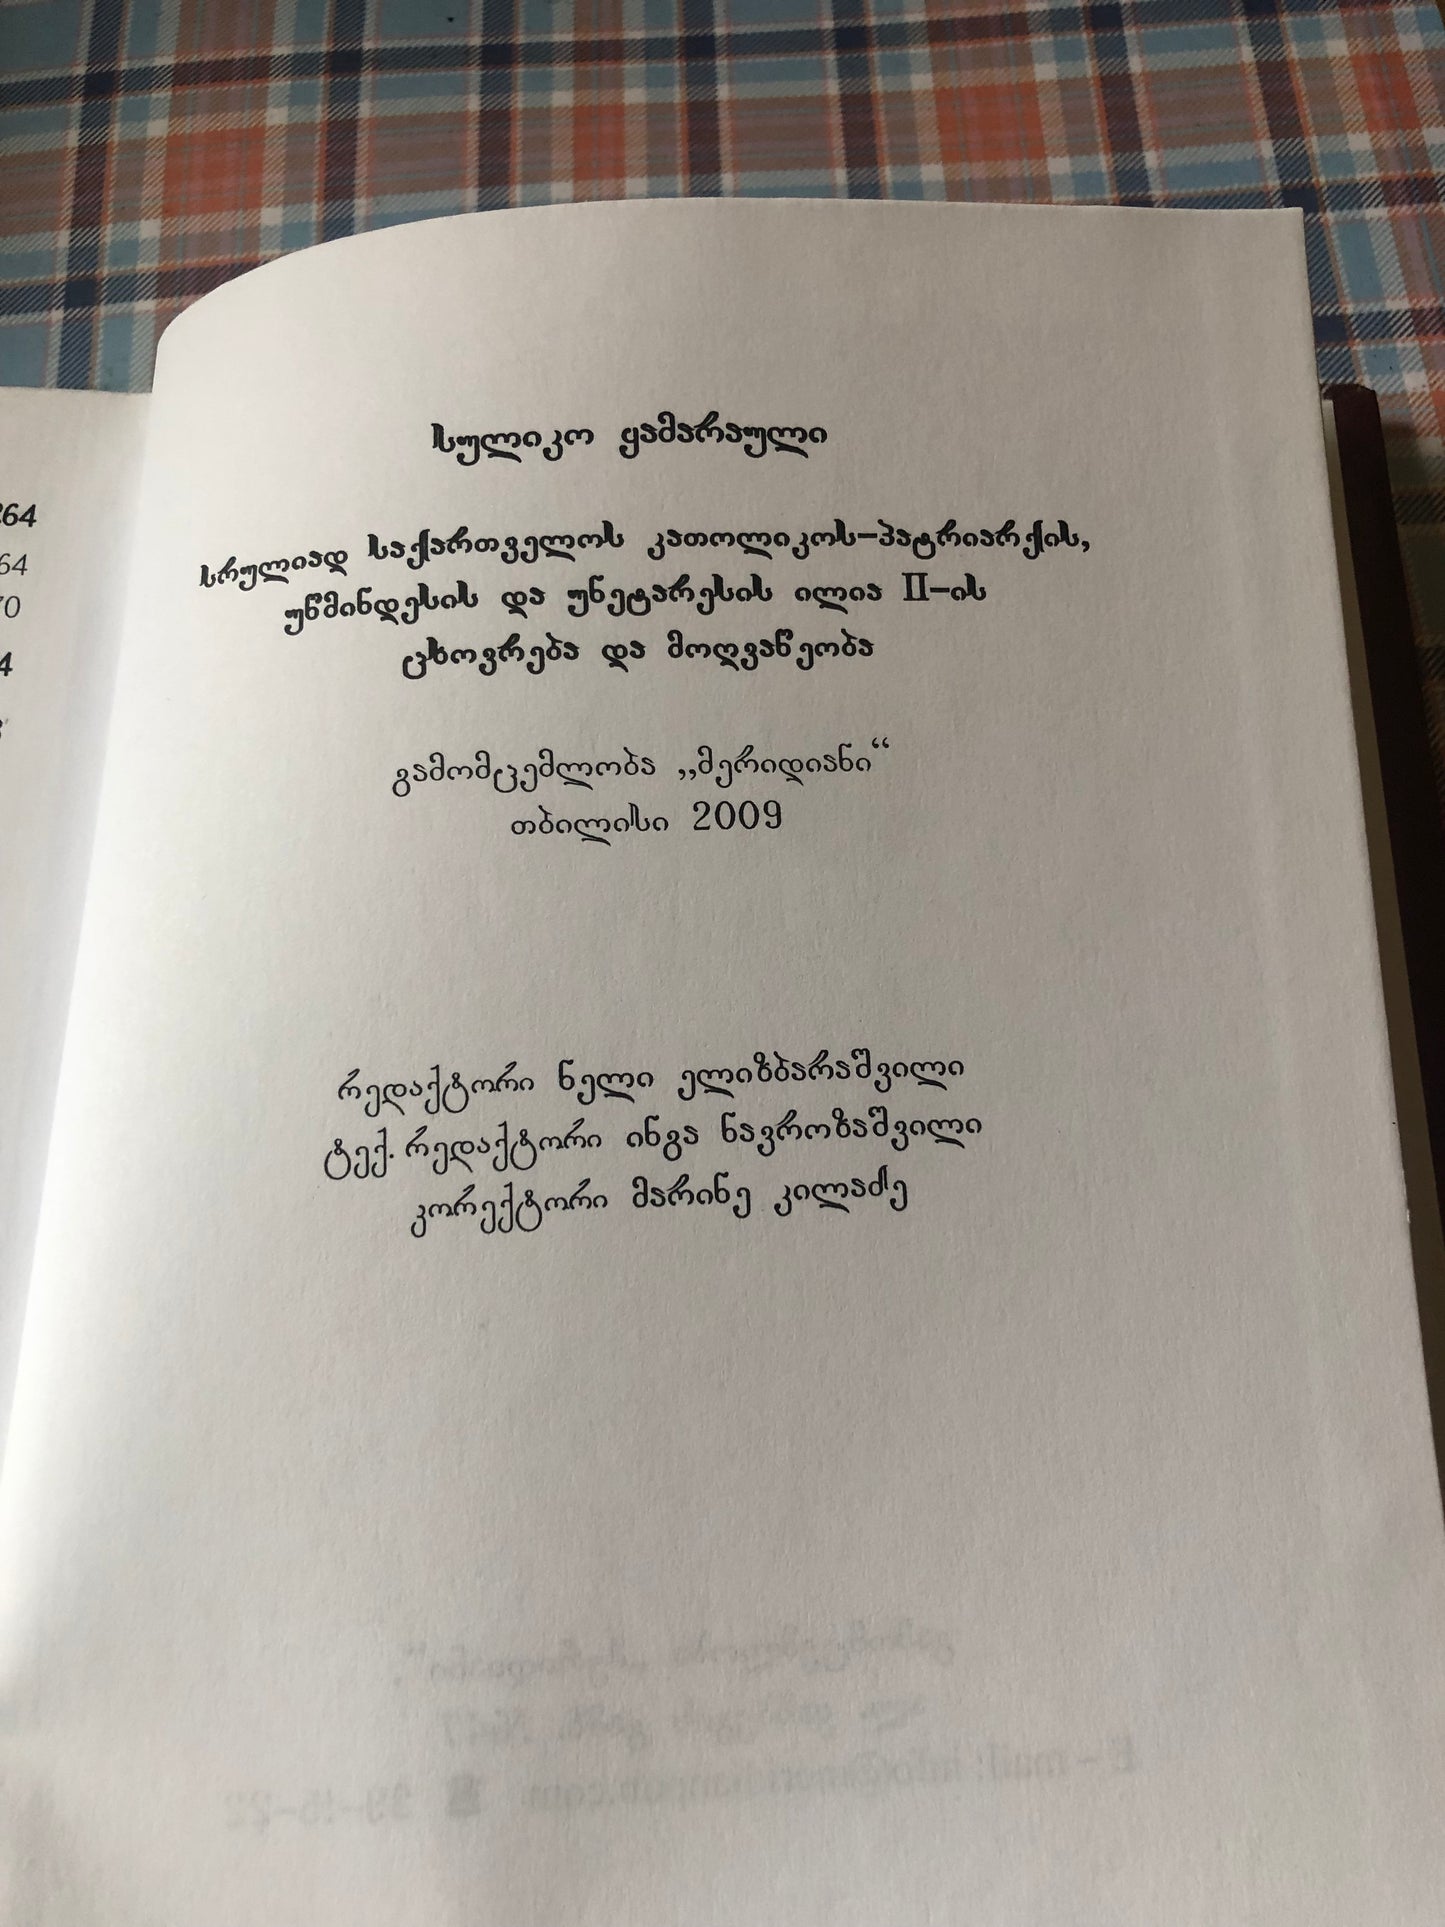 სულიკო ყამარაული
სრულიად საქართველოს კათოლიკოს-პატრიარქის,
უწმინდესის და უნეტარესის ილია II-ის
ცხოვრება და მოღვაწეობა
გამომცემლობა „მერიდიანი“
თბილისი 2009
რედაქტორი ნელი ელიზბარაშვილი
ტექ. რედაქტორი ინგა ნავროზაშვილი
კორექტორი მარინე კილაძე
64
64
70
4